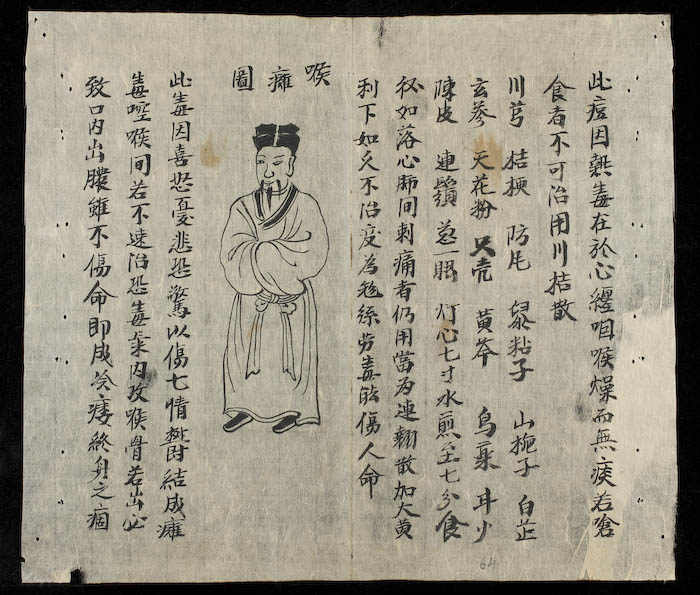 此痘因熱毒在於心纏咽喉燥而無痰若嗆
食者不可治用川拮散
川芎 拮梗 防風 鼠粘子 山梔子 白芷
玄參 天花粉 只壳 黃芩 烏藥 甘少
陳皮 連翹 葱一根 灯心七寸水煎至七分食
後如落心肺間刺痛者仍用當歸連翹散加大黃
利下如久不治变為 絲劳毒能傷人命
喉癰圖
此毒因喜怒憂悲恐驚以傷七情鬱結成癰
毒哽喉間若不速治恐毒氣内攻喉骨若出必
致口内出膿雖不傷命即成冷瘻終身之痼
64